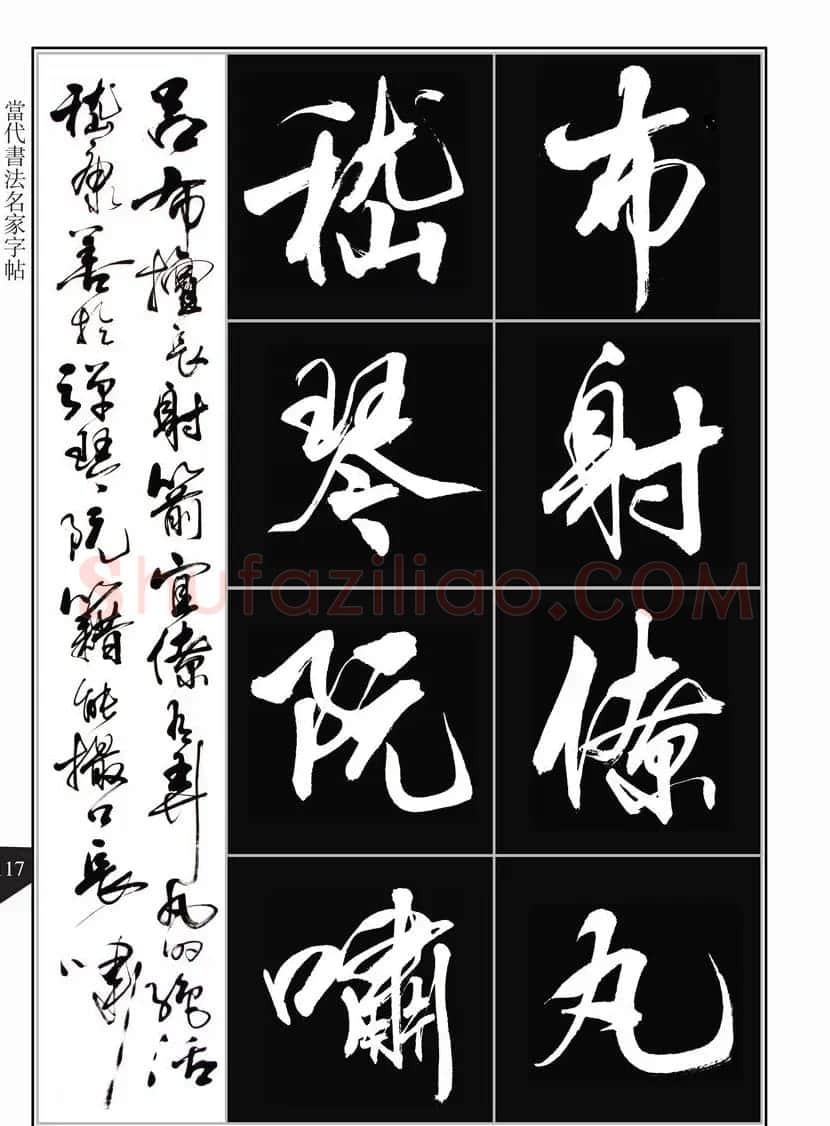 當代書法名家字帖
布射僚丸
嵇琴阮嘯
呂布擅長射箭宜僚有弄丸的絕活
嵇康善於彈琴阮籍能撮口長嘯
17
Shufaziliao.COM